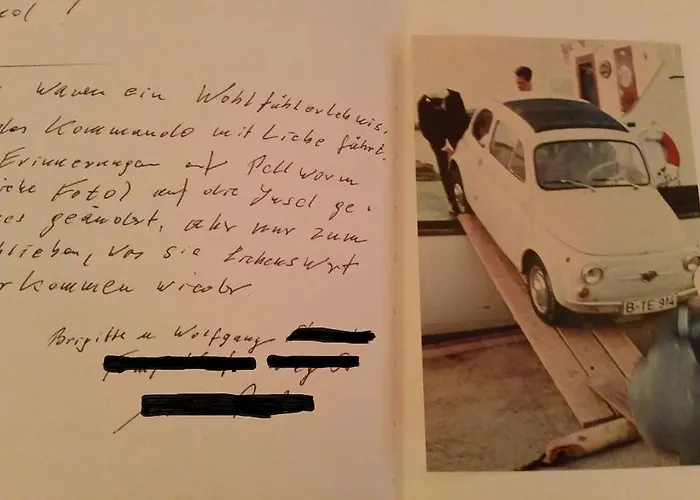 waren ein Wohlfühlerlebnis.
das Kommando mit Liebe führt.
Erinnerungen auf Pellworm
Foto) auf die Insel ge-
es geändert, aber nur zum
blieben, was sie liebenswert
kommen wieder.
Brigitte u Wolfgang
B-TE 914